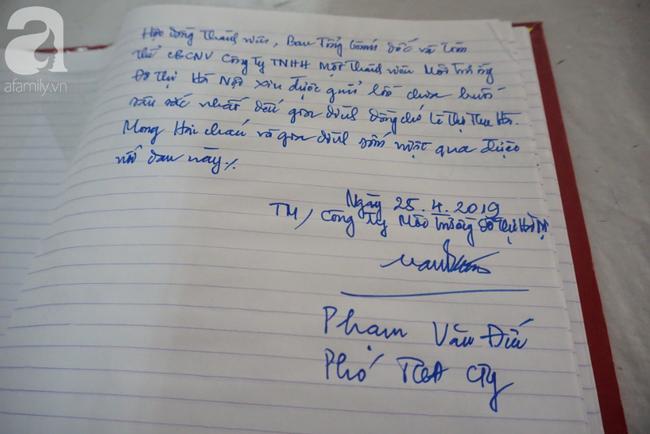 a
afamily.vn
Hội đồng thành viên, Ban Tổng Giám đốc và toàn
thể CBCNV Công Ty TNHH Một thành viên Môi trường
Đô thị Hà Nội xin được gửi lời chia buồn
sâu sắc nhất đến gia đình đồng chí Lê Thị Thu Hà.
Mong Hai cháu và gia đình sớm vượt qua được
nỗi đau này./.
Ngày 25.4.2019
TM/ Công Ty Môi trường Đô thị Hà Nội
Phạm Văn Đức
Phó TGĐ CTy